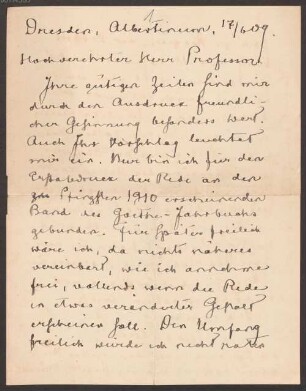 1
Dresden, Albertinum, 17/6 09.
Hochverehrter Herr Professor
Ihre gütigen Zeilen sind mir
durch den Ausdruck freundli-
cher Gesinnung besonders wert.
Auch Ihr Vorschlag leuchtet
mir ein. Nur bin ich für den
Erstabdruck der Rede an den
Pfingsten 1910 erscheinenden
Band des Goethe-Jahrbuchs
gebunden. Für später freilich
wäre ich, da nichts näheres
vereinbart, wie ich annehme
frei, vollends wenn die Rede
in etwas veränderter Gestalt
erscheinen soll. Den Umfang
freilich würde ich nicht raten